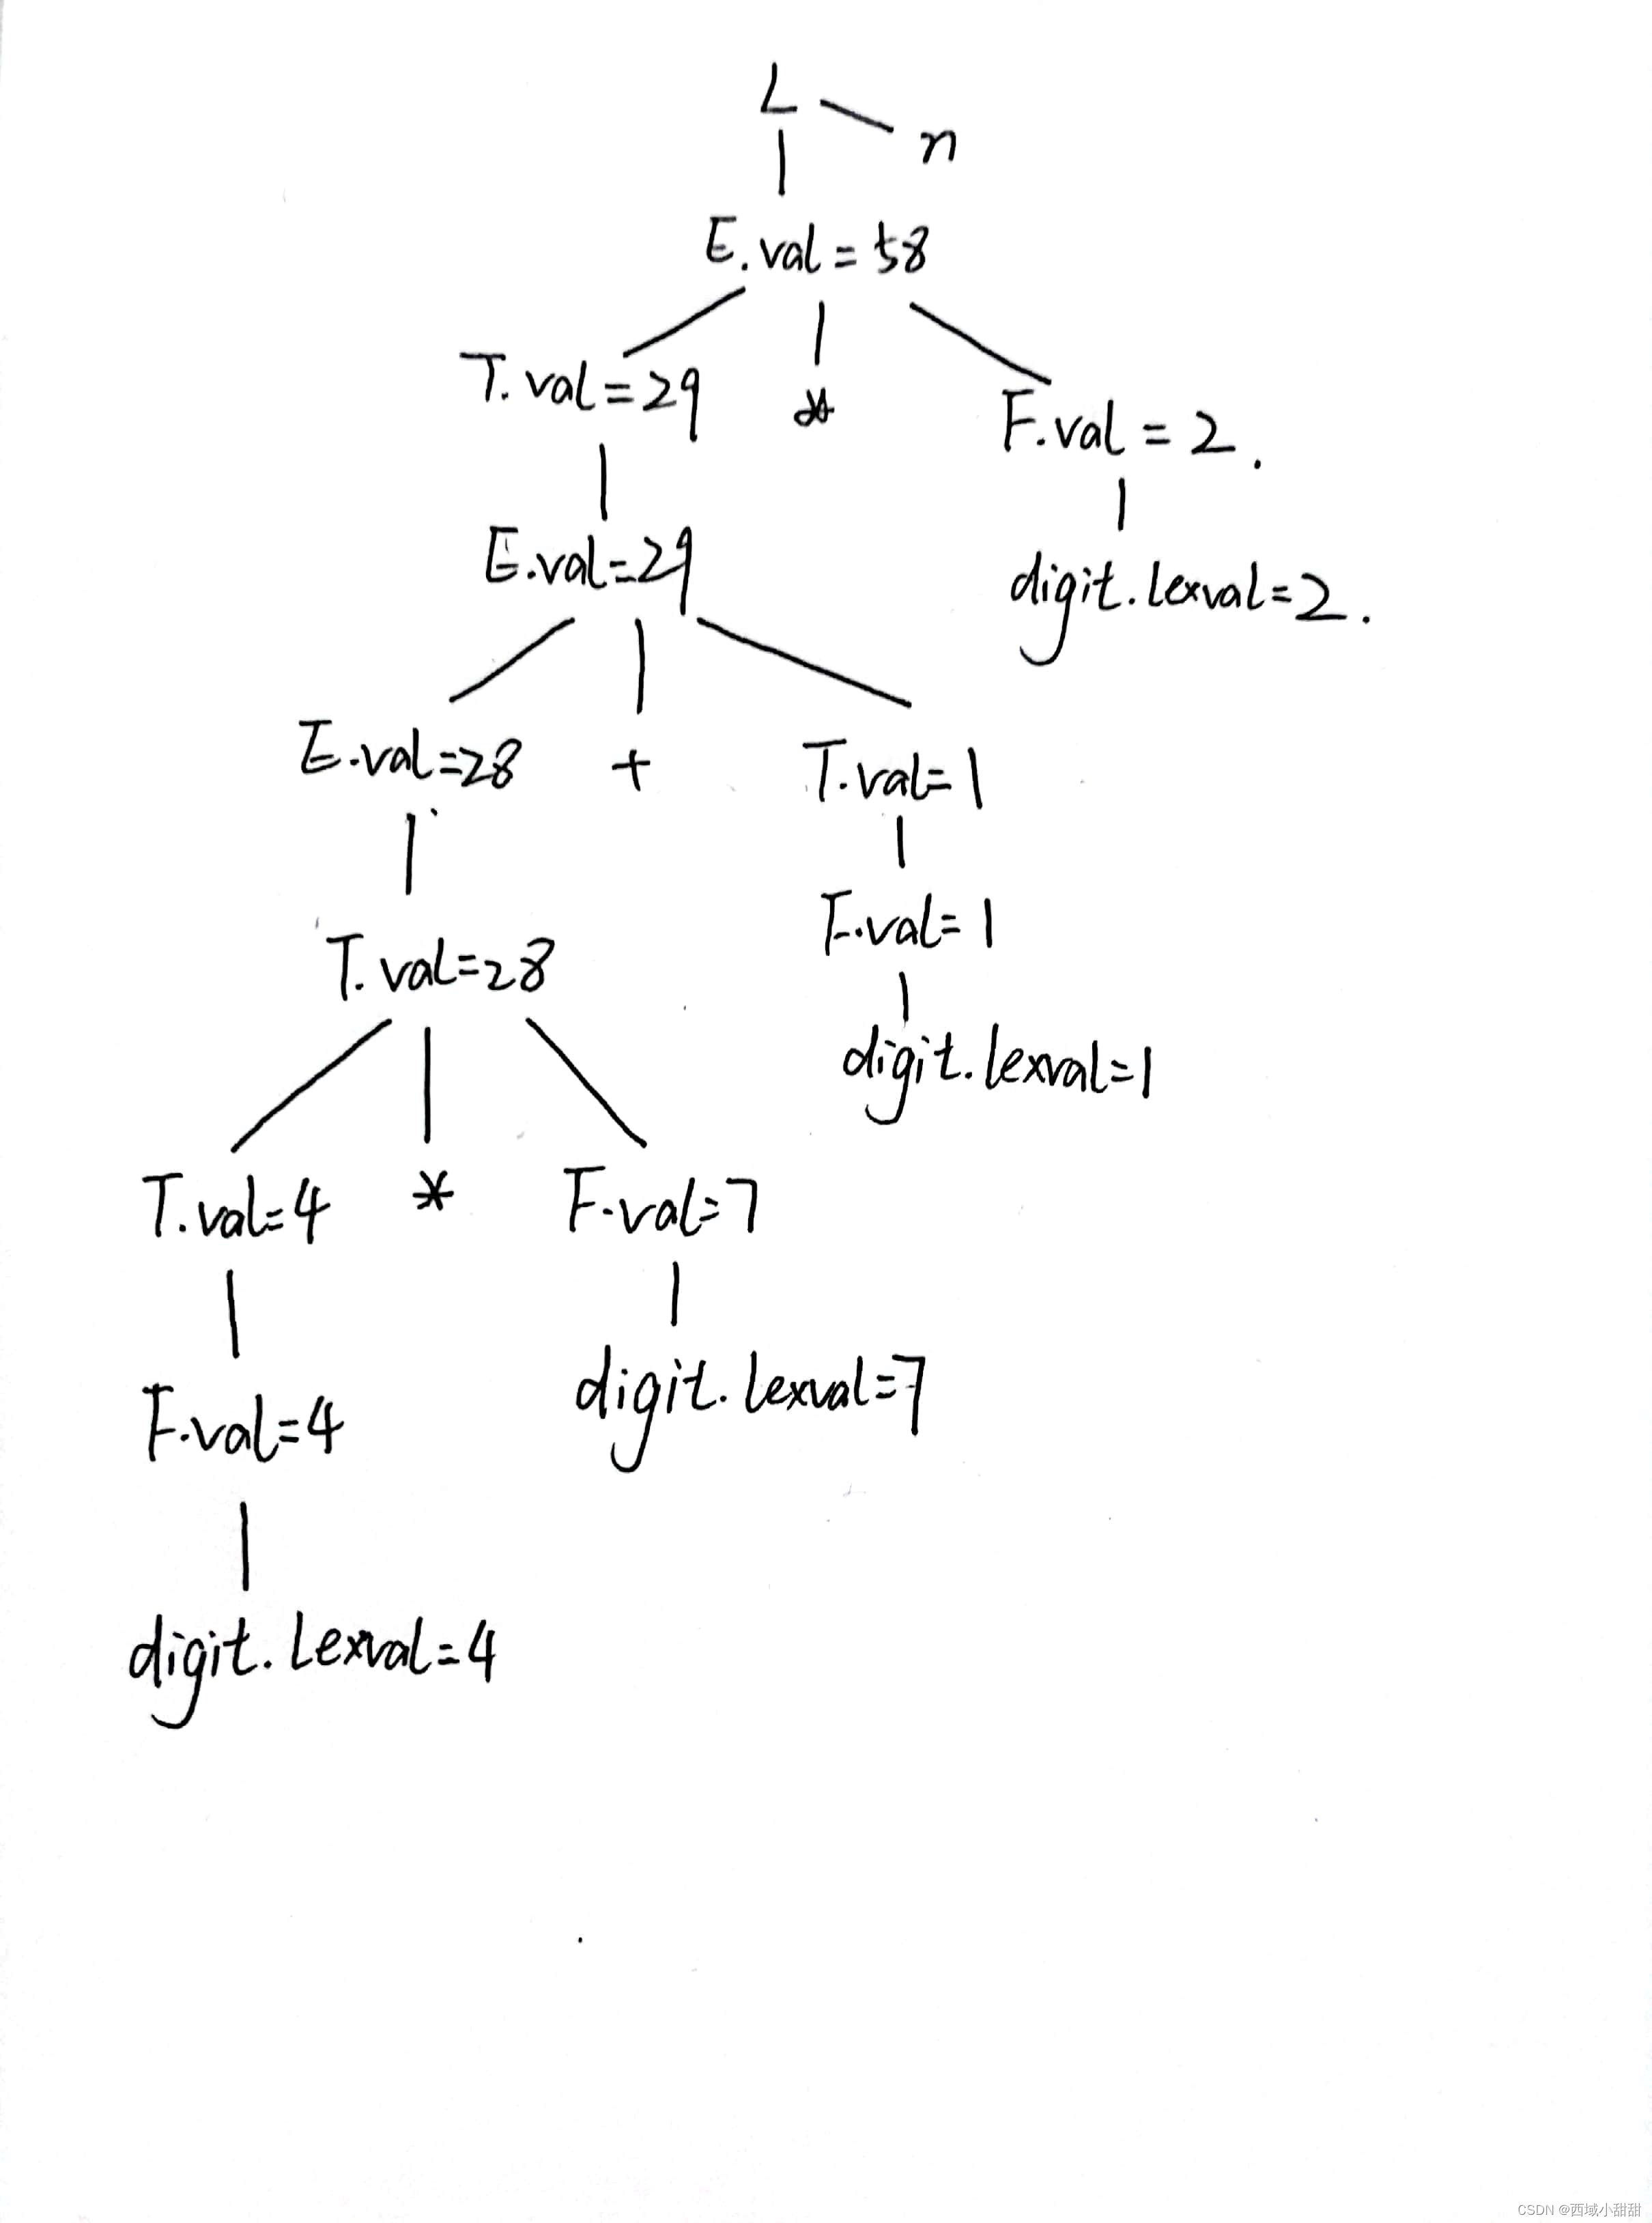 L
n
E.val=58
T.val=29 * F.val=2.
E.val=29
digit.lexval=2.
E.val=28 + T.val=1
T.val=28
F.val=1
digit.lexval=1
T.val=4 * F.val=7
F.val=4
digit.lexval=7
digit.lexval=4
CSDN @西域小甜甜